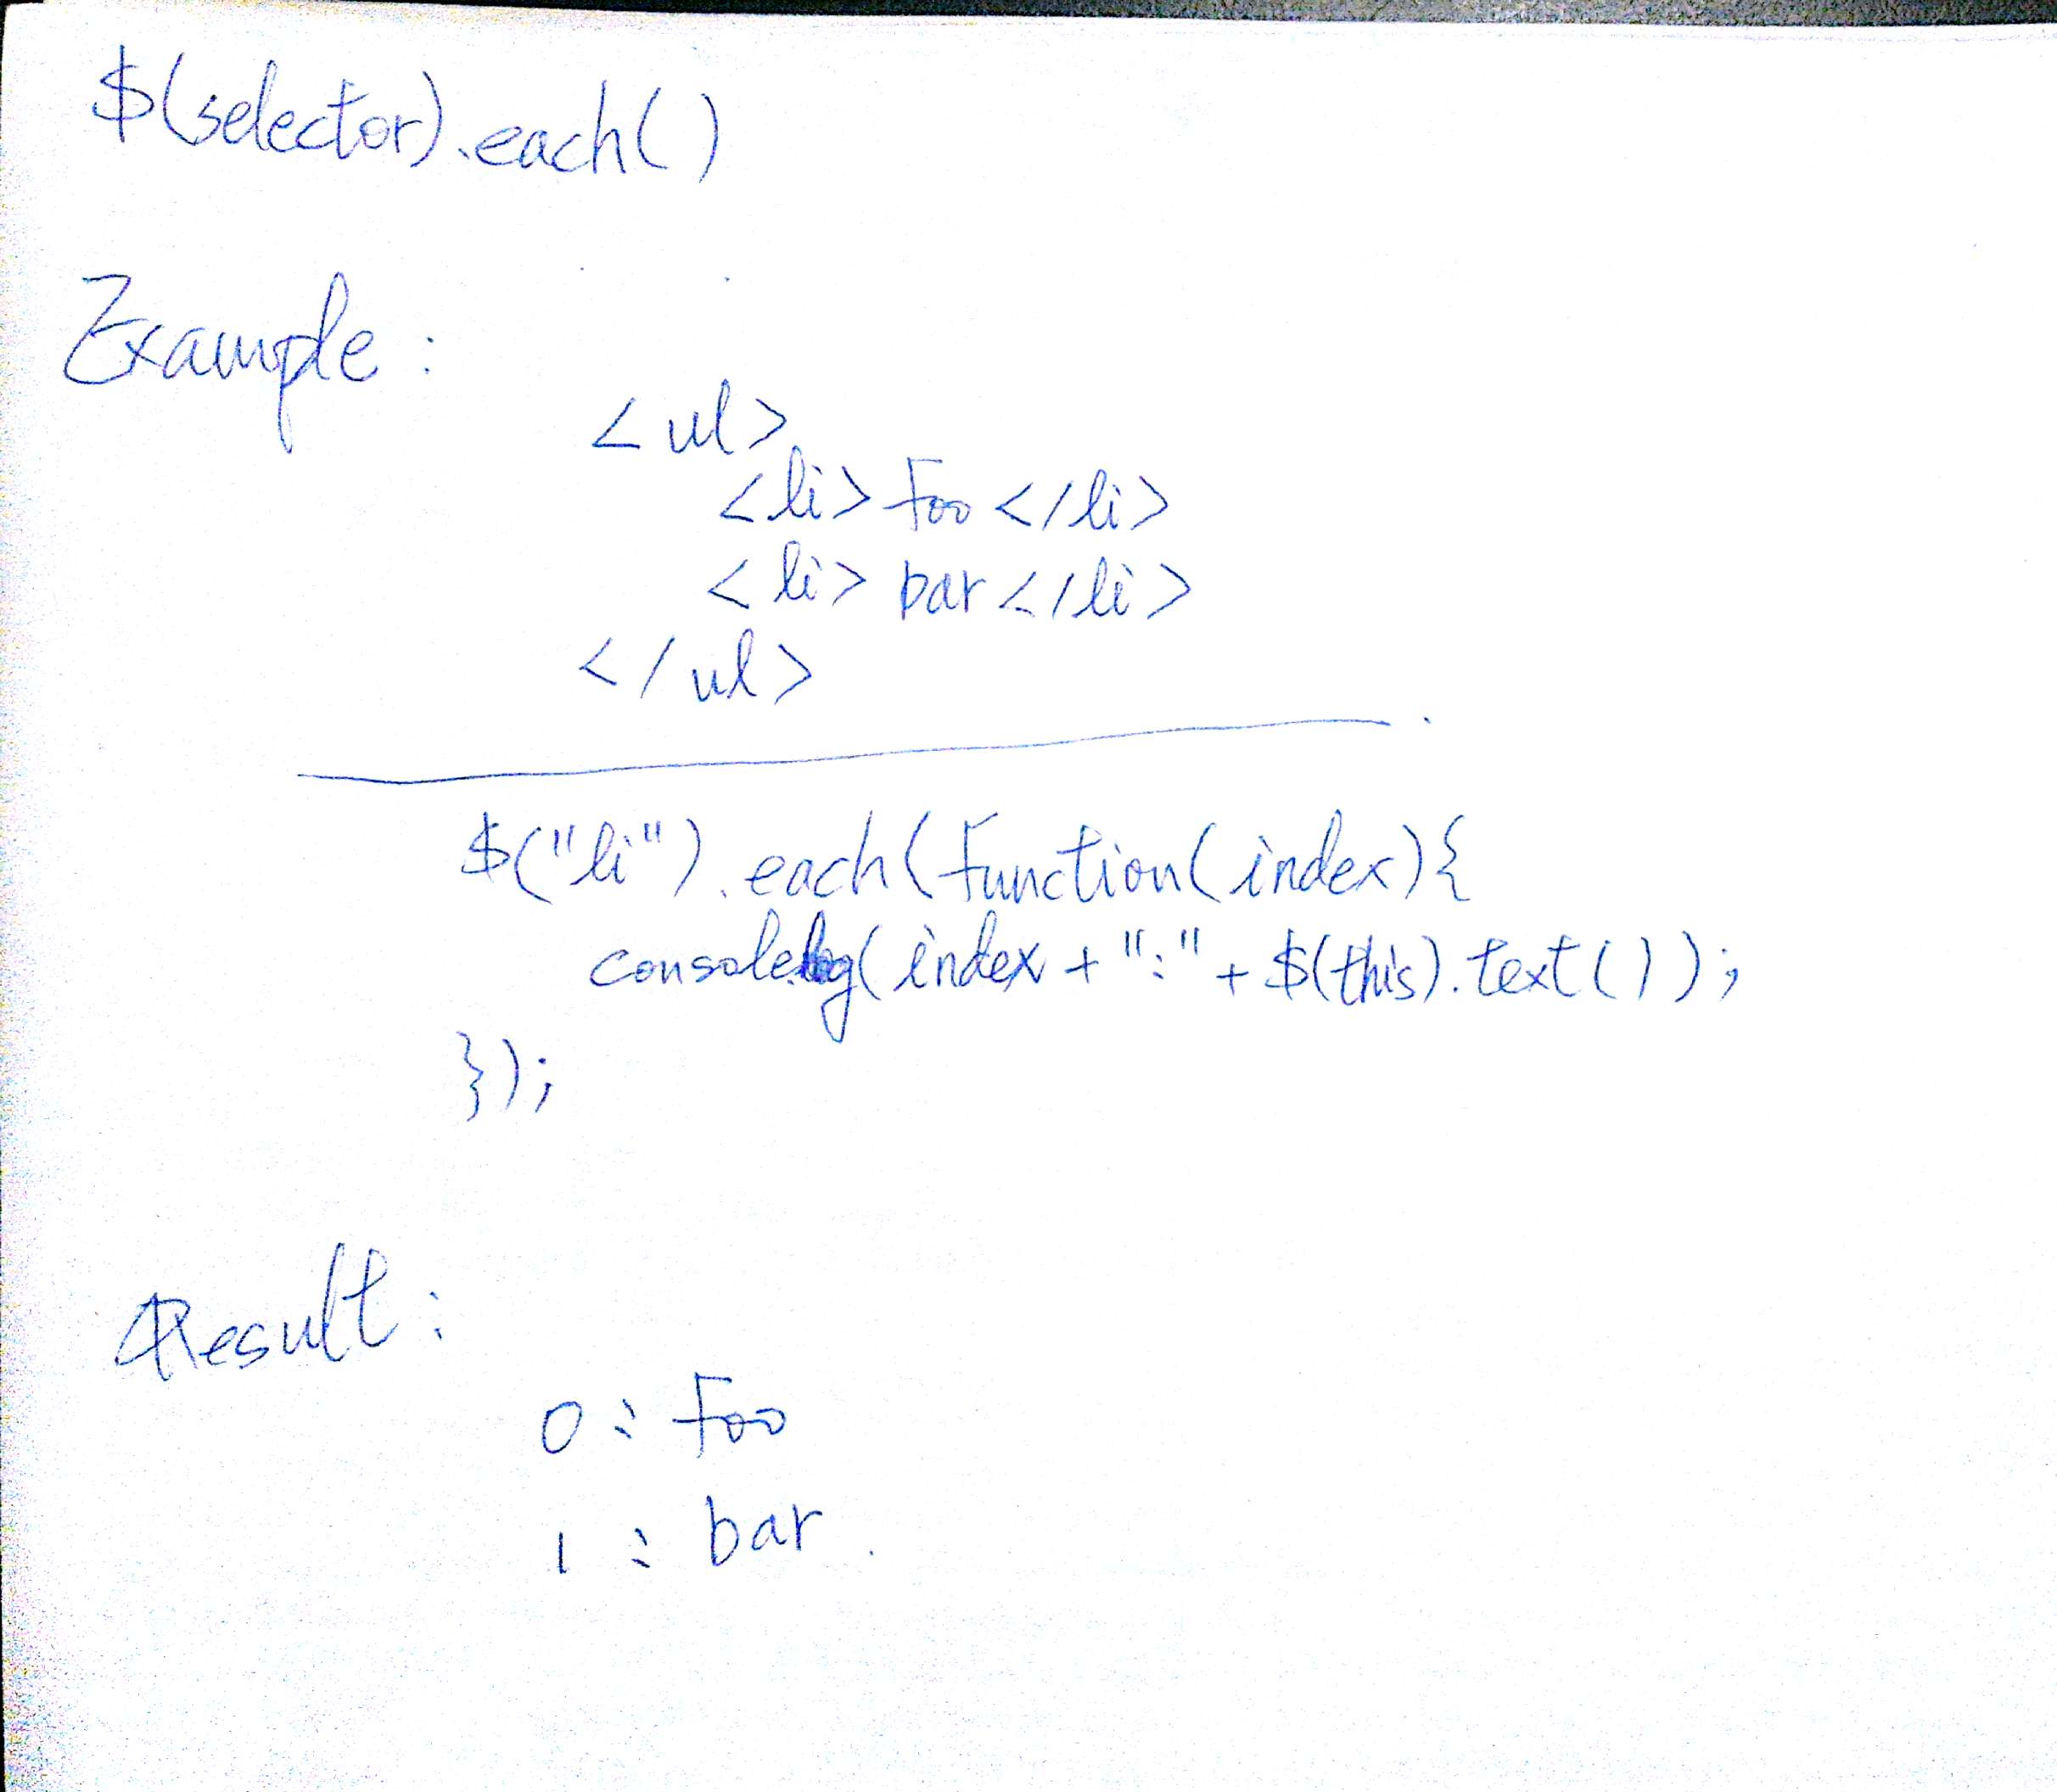 $(selector).each()
Example:
<ul>
<li>Foo</li>
<li>bar</li>
</ul>
$("li").each(function(index){
console.log(index + ":" + $(this).text());
});
Result:
0: Foo
1: bar.